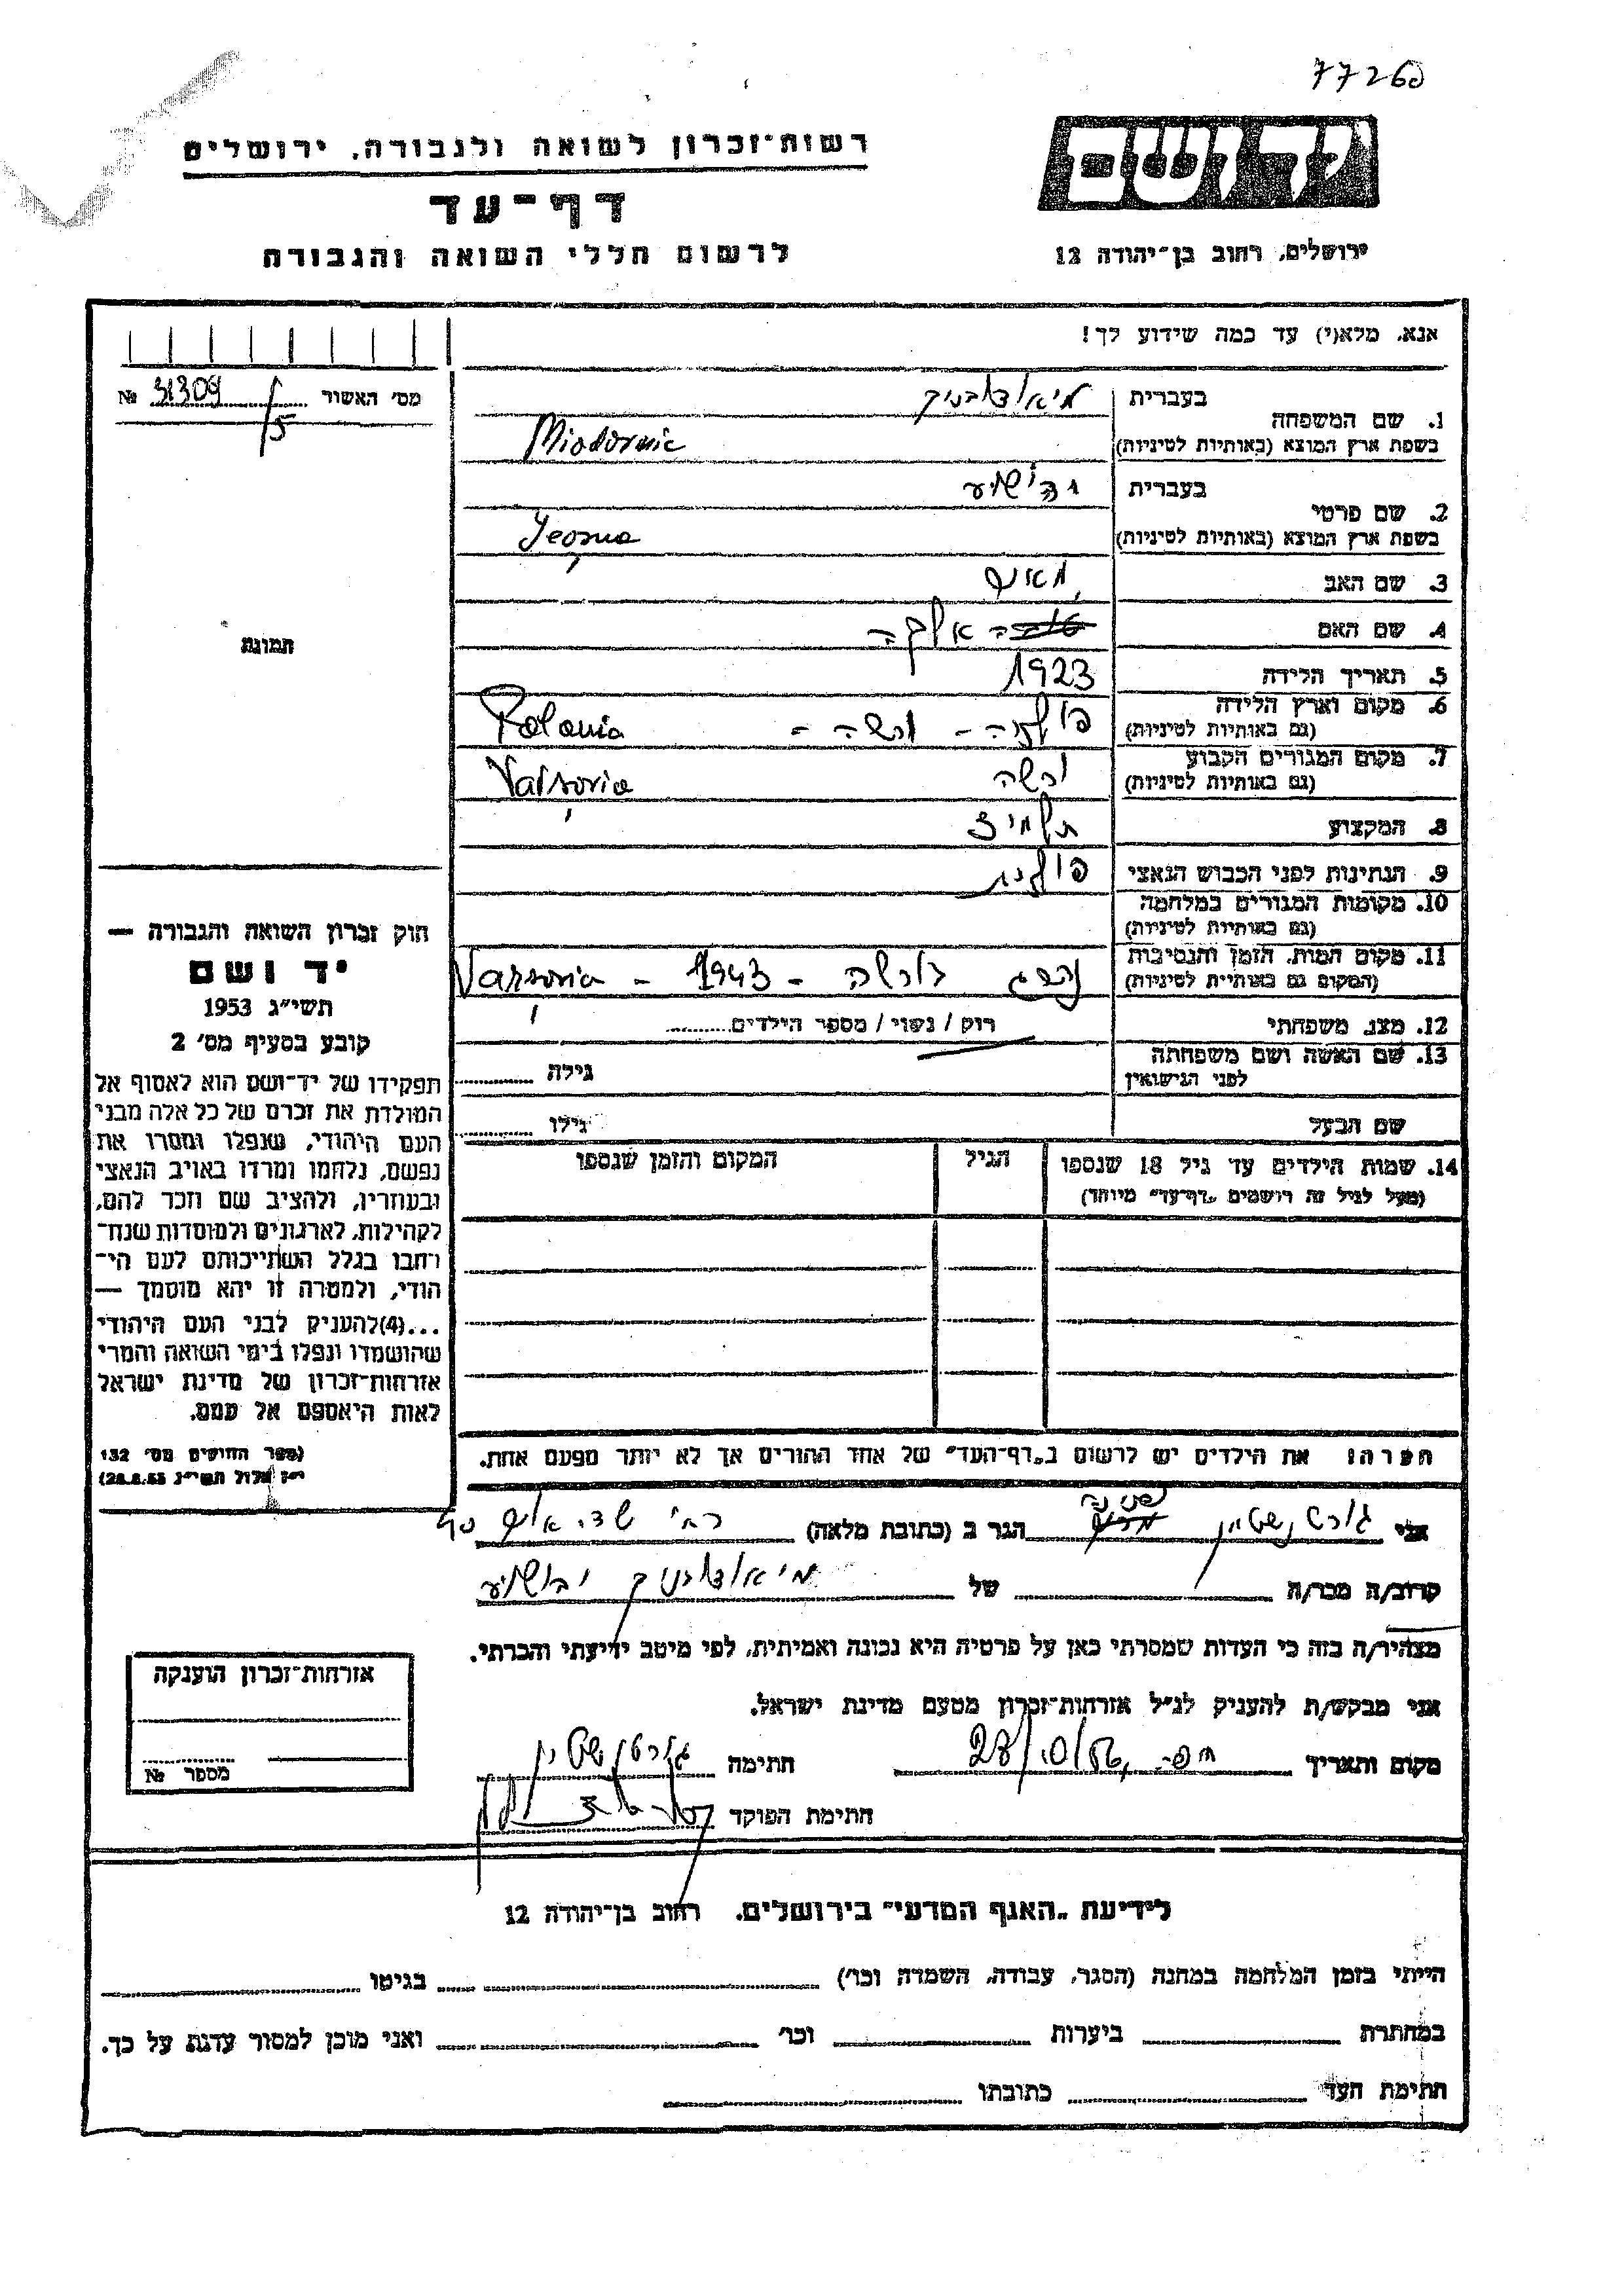 77260
רשות־זכרון לשואה ולגבורה, ירושלים
דף־עד
לרשום חללי השואה והגבורה
יד ושם
ירושלים, רחוב בן־יהודה 12
אנא, מלא(י) עד כמה שידוע לך!
מס׳ האשור № 31309/5
תמונת
1. שם המשפחה
בעברית
בשפת ארץ המוצא (באותיות לטיניות)
Miodovnic
2. שם פרטי
בעברית יהושע
בשפת ארץ המוצא (באותיות לטיניות)
3. שם האב
4. שם האם
5. תאריך הלידה 1923
6. מקום וארץ הלידה
(גם באותיות לטיניות)
פולניה - ורשה - Polonia
7. מקום המגורים הקבוע
(גם באותיות לטיניות)
ורשה Varsovia
8. המקצוע תלמיד
9. הנתינות לפני הכבוש הנאצי פולנית
10. מקומות המגורים במלחמה
(גם באותיות לטיניות)
11. מקום המות, הזמן והנסיבות
(המקום גם באותיית לטיניות)
נהרג בורשה - 1943 - Varsovia
12. מצב משפחתי רוק / נשוי / מספר הילדים
13. שם האשה ושם משפחתה
לפני הנישואין
גילה
שם הבעל
גילו
14. שמות הילדים עד גיל 18 שנספו
(מעל לגיל זה רושמים „דף־עד״ מיוחד)
הגיל
המקום והזמן שנספו
הערה: את הילדים יש לרשום ב„דף־העד״ של אחד ההורים אך לא יותר מפעם אחת.
חוק זכרון השואה והגבורה —
יד ושם
תשי״ג 1953
קובע בסעיף מס׳ 2
תפקידו של יד־ושם הוא לאסוף אל
המולדת את זכרם של כל אלה מבני
העם היהודי, שנפלו ומסרו את
נפשם, נלחמו ומרדו באויב הנאצי
ובעוזריו, ולהציב שם וזכר להם,
לקהילות, לארגונים ולמוסדות שנח־
רחבו בגלל השתייכותם לעם הי־
הודי, ולמטרה זו יהא מוסמך —
...(4)להעניק לבני העם היהודי
שהושמדו ונפלו בימי השואה והמרי
אזרחות־זכרון של מדינת ישראל
לאות היאספם אל עמם.
(ספר החוקים מס׳ 132
י״ז אלול תשי״ג 28.8.53)
אני הגר ב (כתובת מלאה)
קרוב/ה מכר/ה של יהושע
מצהיר/ה בזה כי העדות שמסרתי כאן על פרטיה היא נכונה ואמיתית, לפי מיטב ידיעתי והכרתי.
אני מבקש/ת להעניק לנ״ל אזרחות־זכרון מטעם מדינת ישראל.
מקום ותאריך 28/10/56 חתימה
חתימת הפוקד
אזרחות־זכרון הוענקה
מספר №
לידיעת „האגף המדעי״ בירושלים, רחוב בן־יהודה 12
הייתי בזמן המלחמה במחנה (הסגר, עבודה, השמדה וכו׳) בגיטו
במחתרת ביערות וכו׳ ואני מוכן למסור עדות על כך.
חתימת העד כתובתו